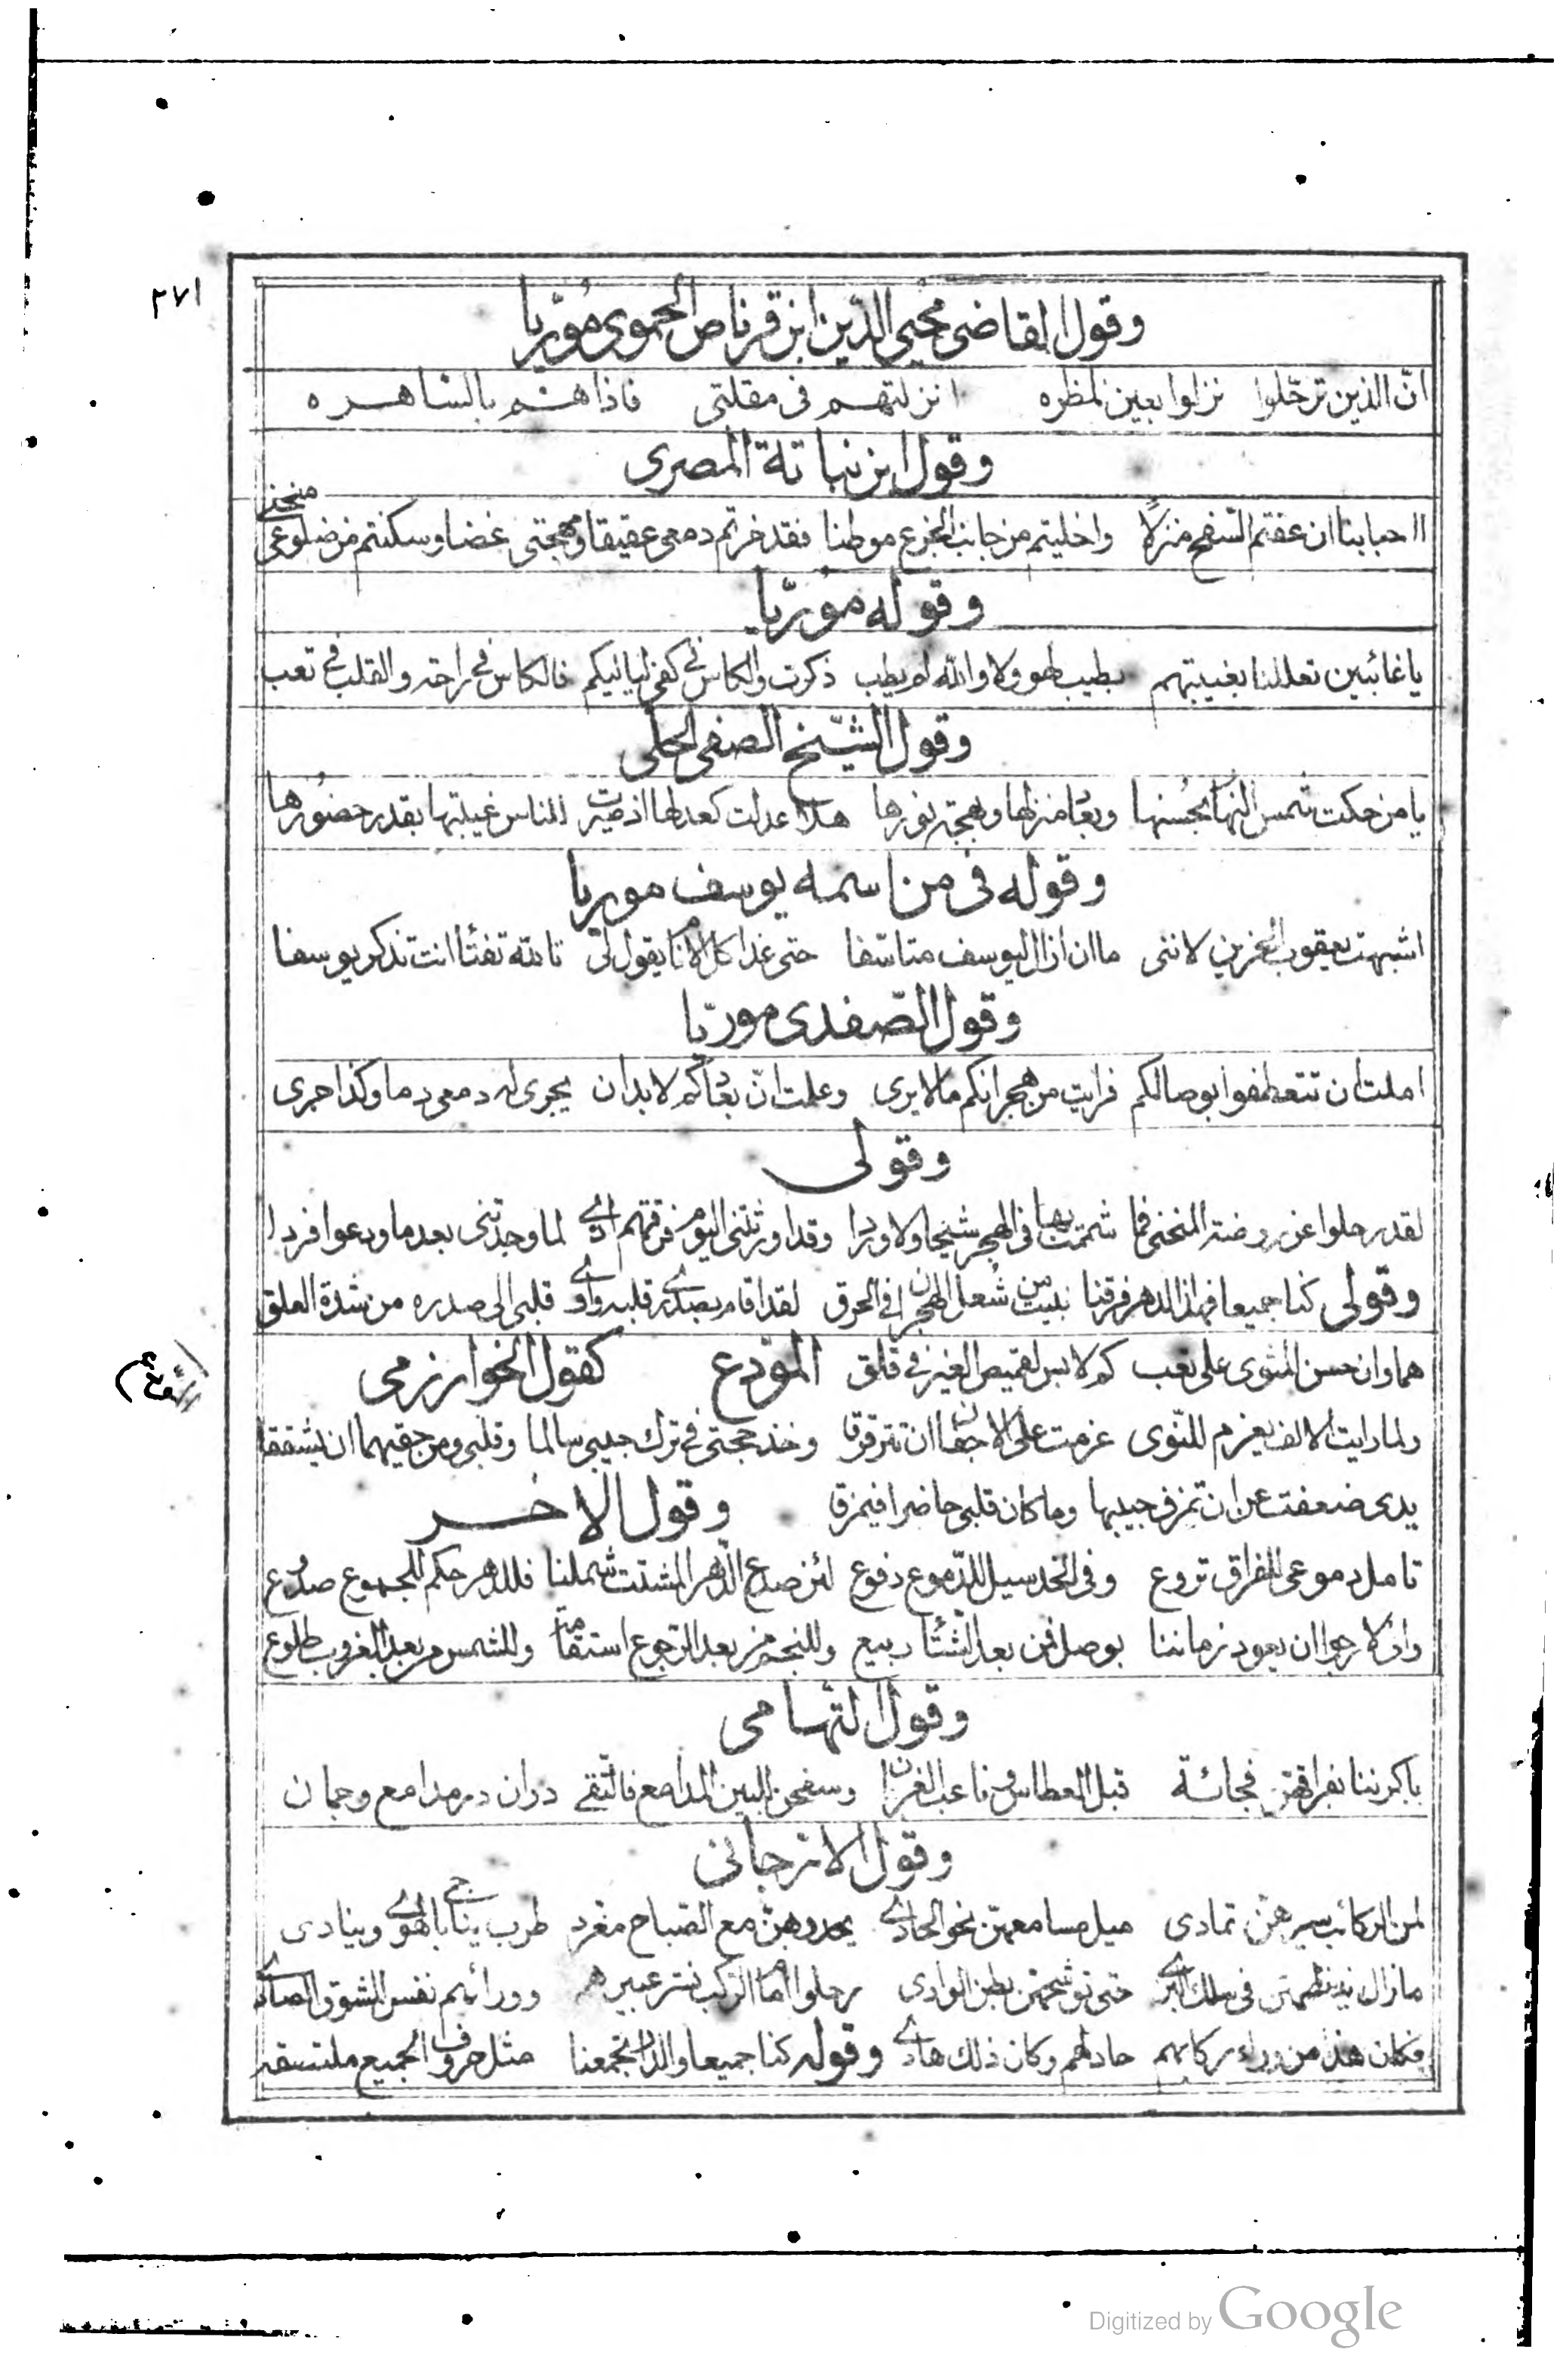 ٢٧١
وقول القاضى محيى الدين ابن قرناص الحموى مُورّيا
انّ الذين ترحّلوا نزلوا بعين ناظره انزلتهم فى مقلتى فاذا هم بالساهره
وقول ابن نباتة المصرى
ااحبابنا ان عفتم السّفح منزلاً واخليتم من جانب الجزع موطنا فقد خرتم دمعى عقيقا ومهجتى غضا وسكنتم من ضلوعى منحنى
وقوله مُورّيا
يا غائبين تعللنا بغيبتهم بطيب لهو ولا والله لم يطب ذكرت والكاس فى كفى لياليكم فالكاس فى راحة والقلب فى تعب
وقول الشيخ الصفى الحلى
يا من حكت شمس النهار بحُسنها وبعد منزلها وبهجة نورها هلا عدلت كعدلها اذ صيرت للناس غيبتها بقدر حضُورها
وقوله فى من اسمه يوسف موريا
اشبهت يعقوب الحزين لاننى ما ان ازال ليوسف متاسّفا حتى غدا كل الانام يقول لى تالله تفتأ انت تذكر يوسفا
وقول الصّفدى مورّيا
املت ان تتعطفوا بوصالكم فرايت من هجرانكم ما لا يرى وعلمت انّ بعادكم لا بد ان يجرى له دمعى دما وكذا جرى
وقولى
لقد رحلوا عن روضة المنحنى فما شممت بها فى الهجر شيحا ولا وردا وقد اورثتنى اليوم فرقتهم لما وجدتنى بعد ما ودعوا فردا
وقولى كنا جميعا فهذا الدهر فرقنا نبيت من شُعل الهجران فى الحرق لقد اقام بصدرى قلبه واوى قلبى الى صدره من شدة العلق
هما وان حسن المثوى على تعب كم لابس لقميص الغير فى قلق المودع كقول الخوارزمى
ولما رايت الالف يعزم للنّوى عزمت على الاجفان ان تترقرقا وخذ حجتى فى ترك جيبى سالما وقلبى ومن حقيهما ان يشققا
يدى ضعفت عن ان تمزق جيبها وما كان قلبى حاضرا فيمزقا وقول الاخر
تامل دموعى للفراق تروع وفى الخد سيل للدّموع دفوع لئن صدع الدّهر المشتت شملنا فللدهر حكم للجموع صدُوع
وانى لارجو ان يعود زماننا بوصل فمن بعد الشتاء ربيع وللنجم من بعد الرجوع استقامة وللشمس من بعد الغروب طلوع
وقول التهامى
باكرننا بفراقهن فجائة قبل العطاس وناعب الغربان وسفحن للبين المدامع فالتقى دران در مدامع وجمان
وقول الارجانى
لمن الركائب سيرهنّ تمادى ميل مسامعهن نحو الحادى يحدو بهنّ مع الصّباح مغرد طرب يناجى بالهوى وينادى
ما زال ينظمهن فى سلك البرى حتى توشحهن بطن الوادى رحلوا امام الركب نشر عبيرهم وورائهم نفس المشوق الصادى
فكان هذا من وراء ركابهم حادلهم وكان ذلك هادى وقوله كنا جميعا والدار تجمعنا مثل حروف الجميع ملتسقه
Digitized by Google